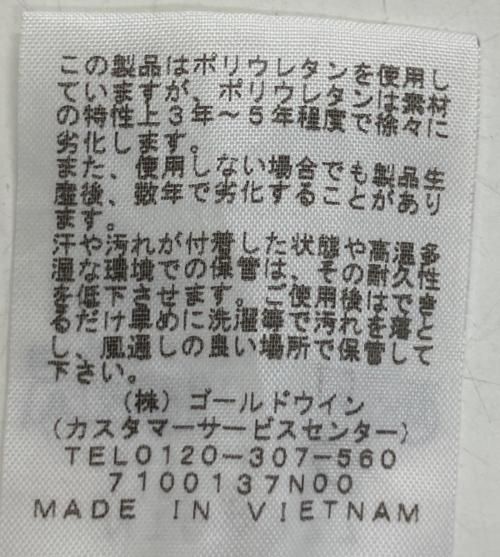 この製品はポリウレタンを使用し
ていますが、ポリウレタンは素材
の特性上3年~5年程度で徐々に
劣化します。
また、使用しない場合でも製品生
産後、数年で劣化することがあり
ます。
汗や汚れが付着した状態や高温多
湿な環境での保管は、その耐久性
を低下させます。ご使用後はでき
るだけ早めに洗濯等で汚れを落と
し、風通しの良い場所で保管して
下さい。
(株)ゴールドウイン
(カスタマーサービスセンター)
TEL0120-307-560
7100137N00
MADE IN VIETNAM